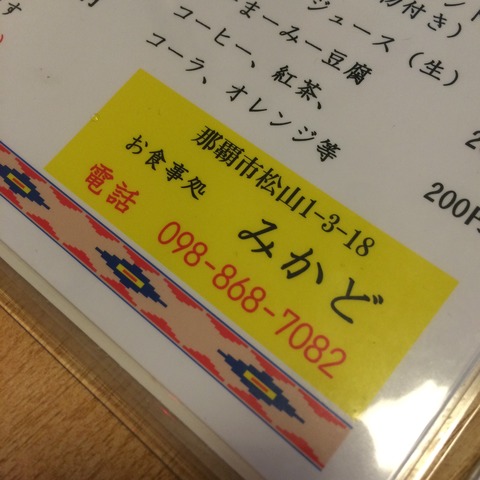 付き)
ジュース(生)
まーみー豆腐
コーヒー、紅茶、
コーラ、オレンジ等
200円
那覇市松山1-3-18
お食事処 みかど
電話 098-868-7082